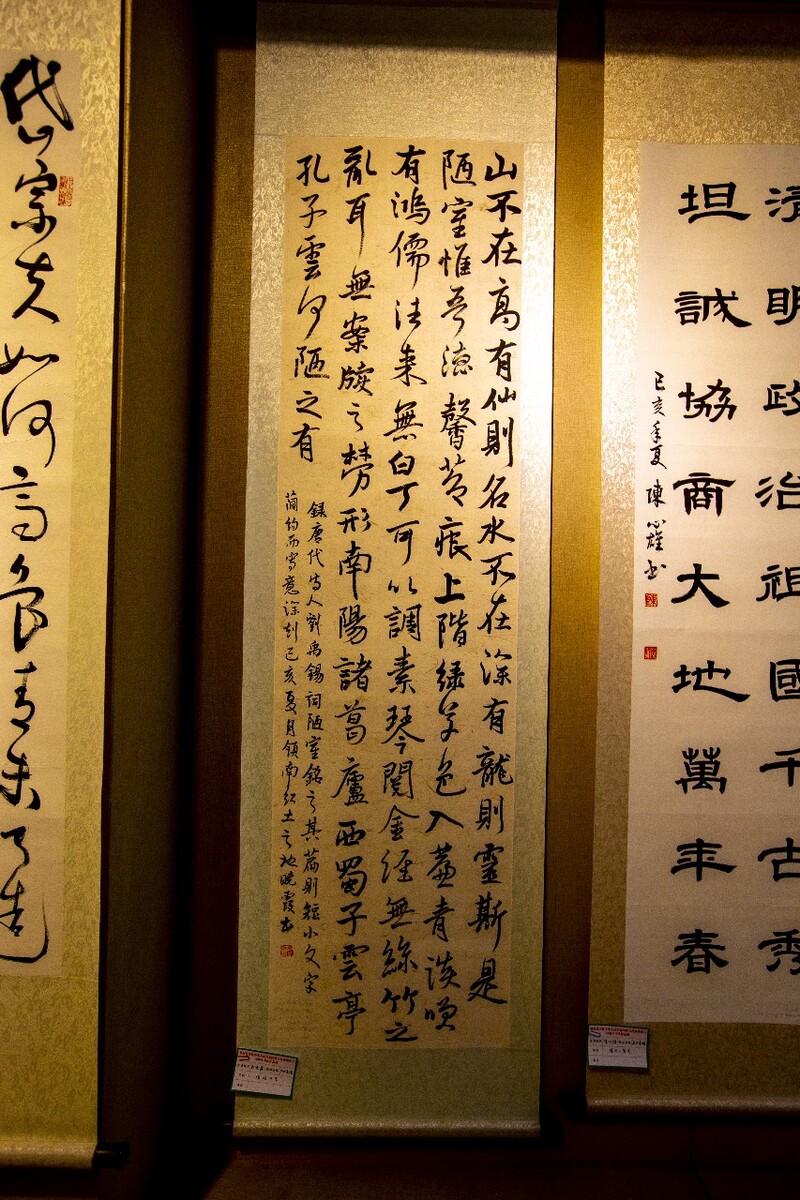 清明政治祖國千古秀
坦誠協商大地萬年春
己亥年夏陳心雄书
山不在高有仙則名水不在深有龍則靈斯是
陋室惟吾德馨苔痕上階綠草色入簾青談咲
有鴻儒往来無白丁可以調素琴閱金經無絲竹之
亂耳無案牘之勞形南陽諸葛廬西蜀子雲亭
孔子雲何陋之有
録唐代诗人劉禹錫詞陋室銘之其篇則短小文字
簡约而寓意深刻己亥夏月领南红土之地晚霞书
岱宗夫如何齐鲁青未了造